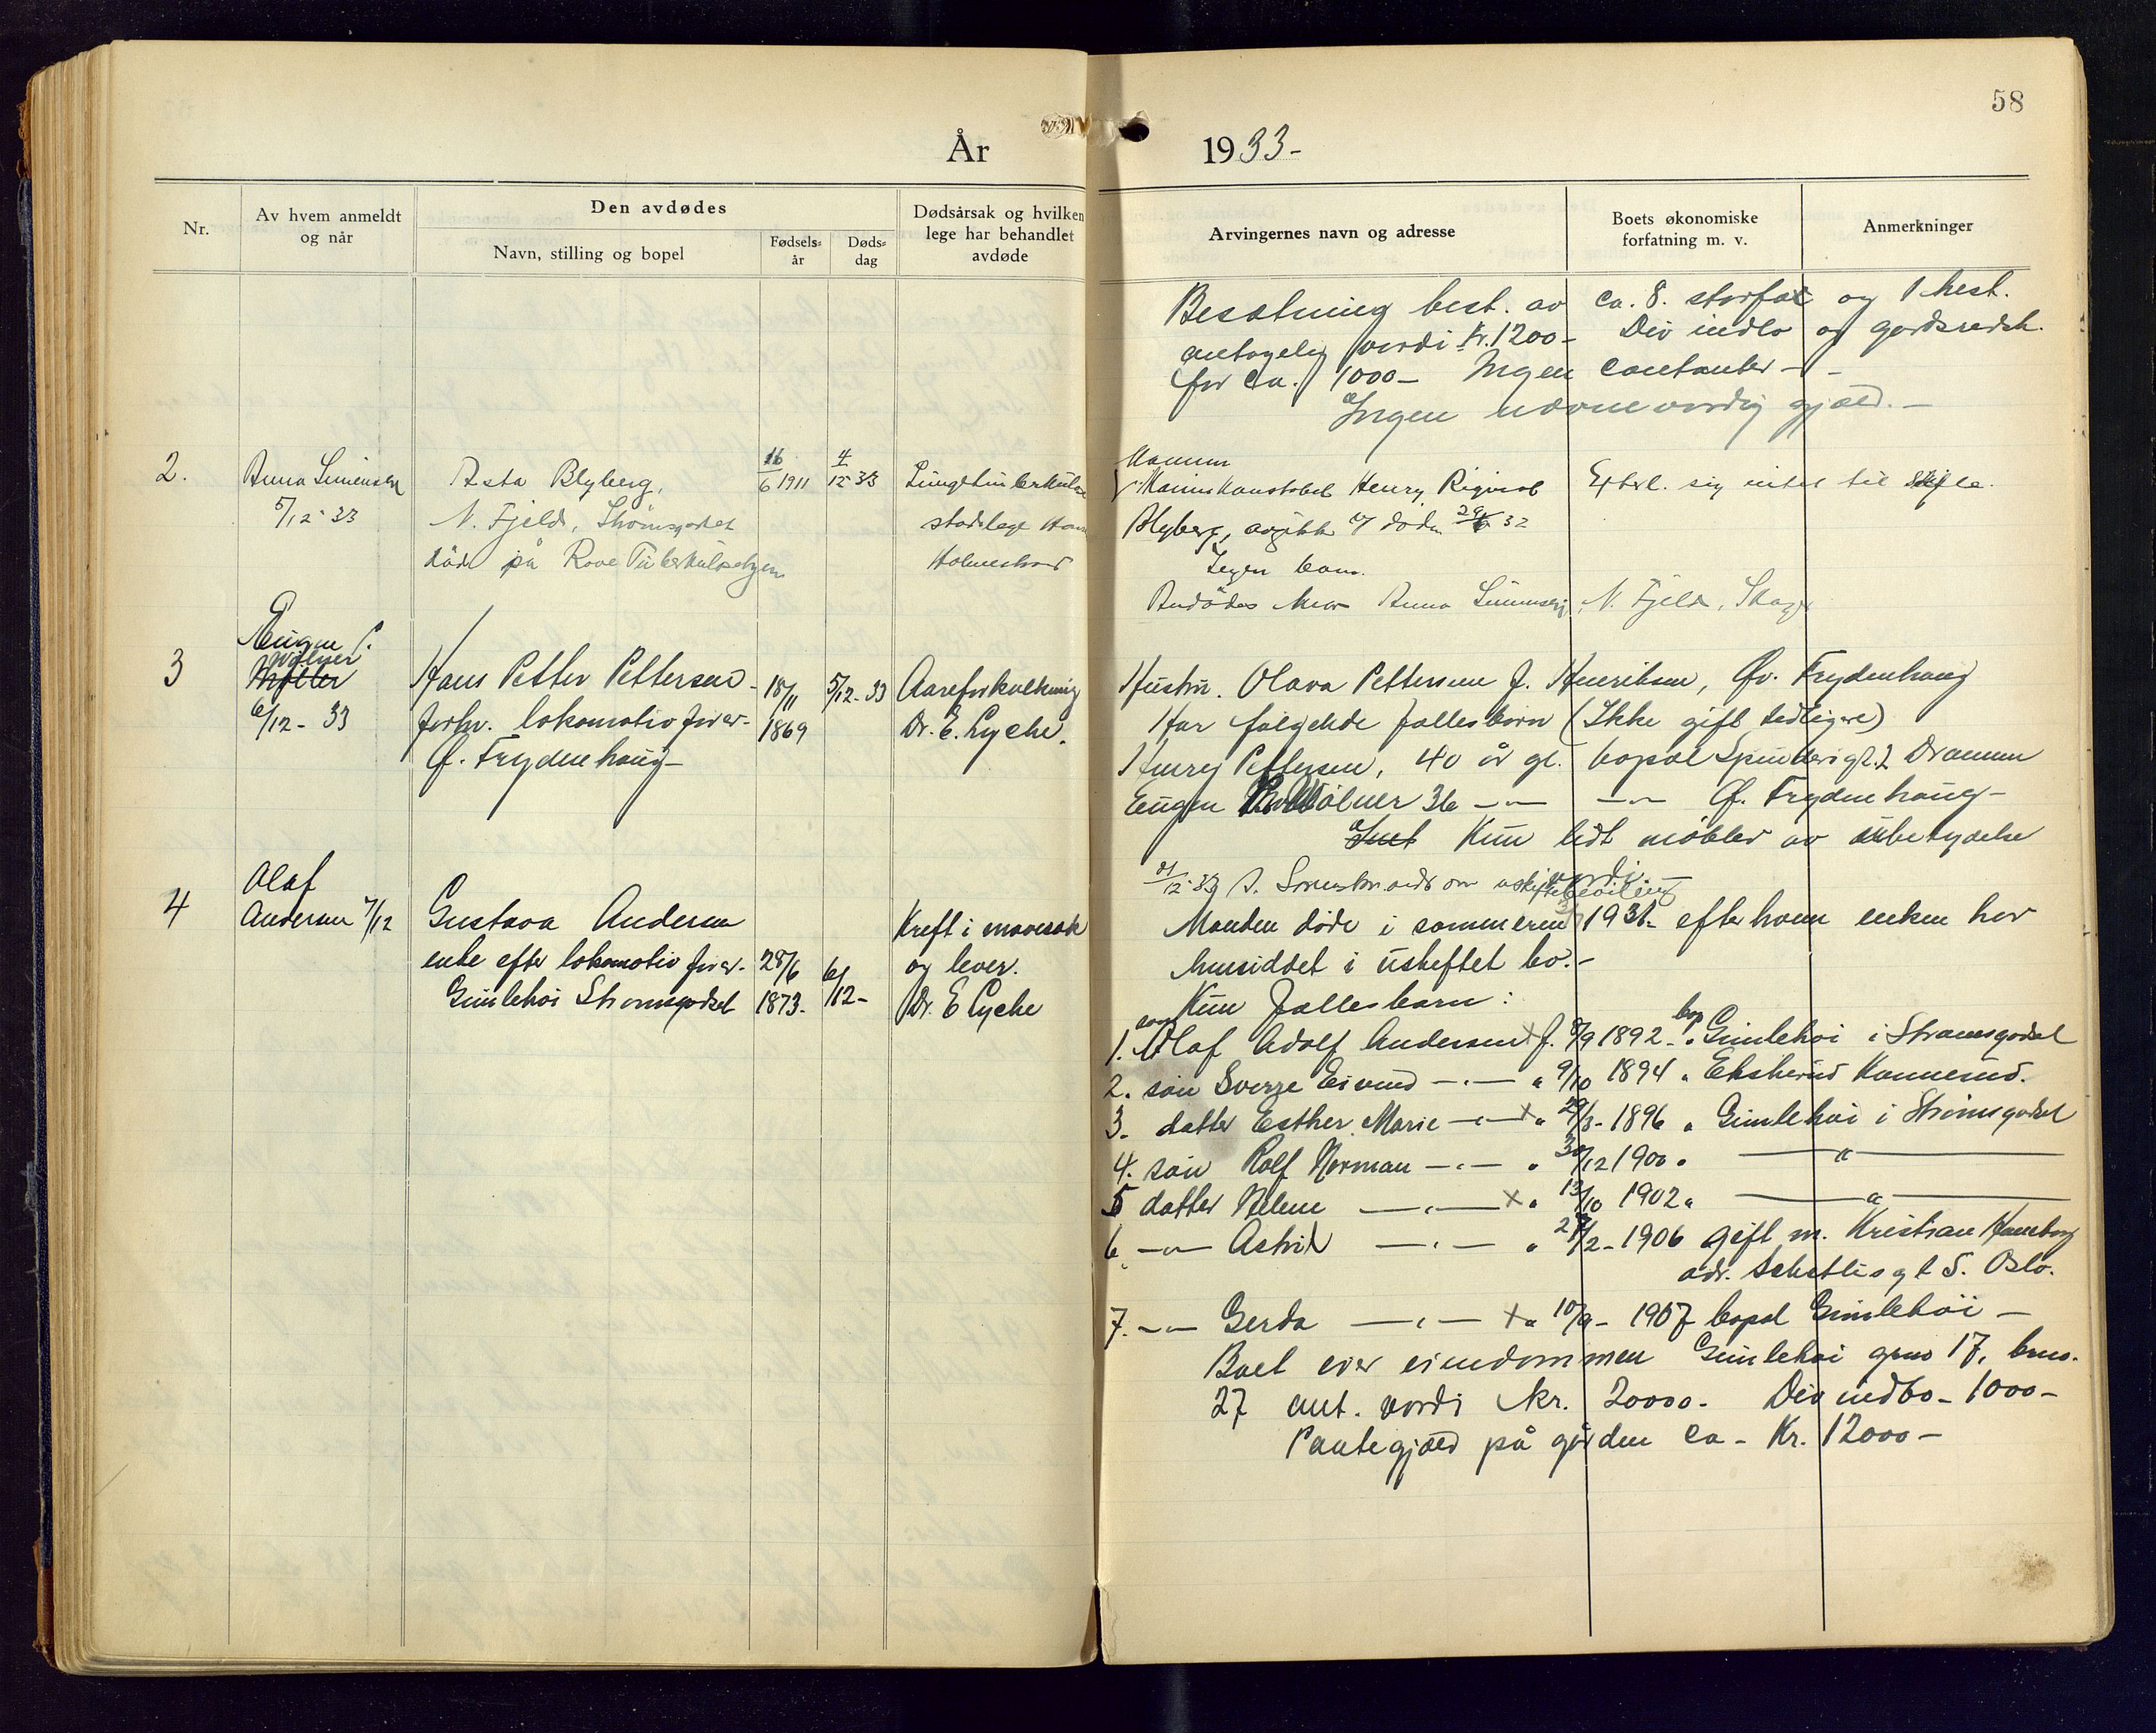 58
År 1933-
Nr.
Av hvem anmeldt og når
Den avdødes
Navn, stilling og bopel
Fødsels-år
Døds-dag
Dødsårsak og hvilken lege har behandlet avdøde
Arvingernes navn og adresse
Boets økonomiske forfatning m. v.
Anmerkninger
Besætning best. av ca. 8. storfæ og 1 hest.
antagelig verdi kr. 1200- Div indbo og gardsredsk.
for ca. 1000- Ingen contanter - -
Ingen nævneverdig gjæld. -
2.
Anna Simensen
5/12-33
Asta Blyberg,
N. Fjeld, Strømsgodset
død på Rove
16/6 1911
4/12-33
Lungetuberkulose
stadslege
Holmestrand
Mannen
Henry
Blyberg, avgikk v/ døden 32
Ingen barn.
Avdødes mor Anna Simensen, N. Fjeld, Skoger
Efterl. sig intet til skifte.
3
Eugen P.
Wølner
Møller
6/12-33
Hans Petter Pettersen
forhv. lokomotivfører-
Ø. Frydenhaug-
18/11
1869
5/12-33
Aareforkalkning
Dr. E. Lyche.
Hustru. Olava Pettersen f. Henriksen, Øv. Frydenhaug
Har følgende fællesbarn (Ikke gift tidligere)
Henry Pettersen, 40 år gl. bopæl gt. 2 Drammen
Eugen Wølner 36 -"- -"- Ø. Frydenhaug-
Intet Kun lidt møbler av ubetydelse
verdi
12-33 s. om uskiftebevilling
4
Olaf
Andersen 7/12
Gustava Andersen
enke efter lokomotivfører-
Gimlehøi Strømsgodset
28/6
1873-
6/12-
Kreft i mavesæk
og lever.
Dr. E Lyche
Manden døde i sommeren 1931- efter ham enken har
hensiddet i uskiftet bo.-
Kun fællesbarn:
1. søn Olaf Adolf Andersen x f. 8/9 1892- bop Gimlehøi i Strømsgodset
2. søn Sverre Eivind -"- " 9/10 1894 " Konnerud.
3. datter Esther Marie -"- x " 29/3- 1896 " Gimlehøi i Strømsgodset
4. søn Rolf Norman -"- " 30/12 1900 " -"-
5 datter Helene -"- x " 13/10 1902 " -"-
6. -"- Astrid -"- " 2- 1906 gift m. Kristian
adr. gt 5. Oslo.
7. -"- Gerda -"- x " 10/9- 1907 bopæl Gimlehøi -
Boet eier eiendommen Gimlehøi grno 17, brno.
27 ant. verdi kr. 20000- Div indbo- 1000-
Pantegjæld på gården ca- Kr. 12000-